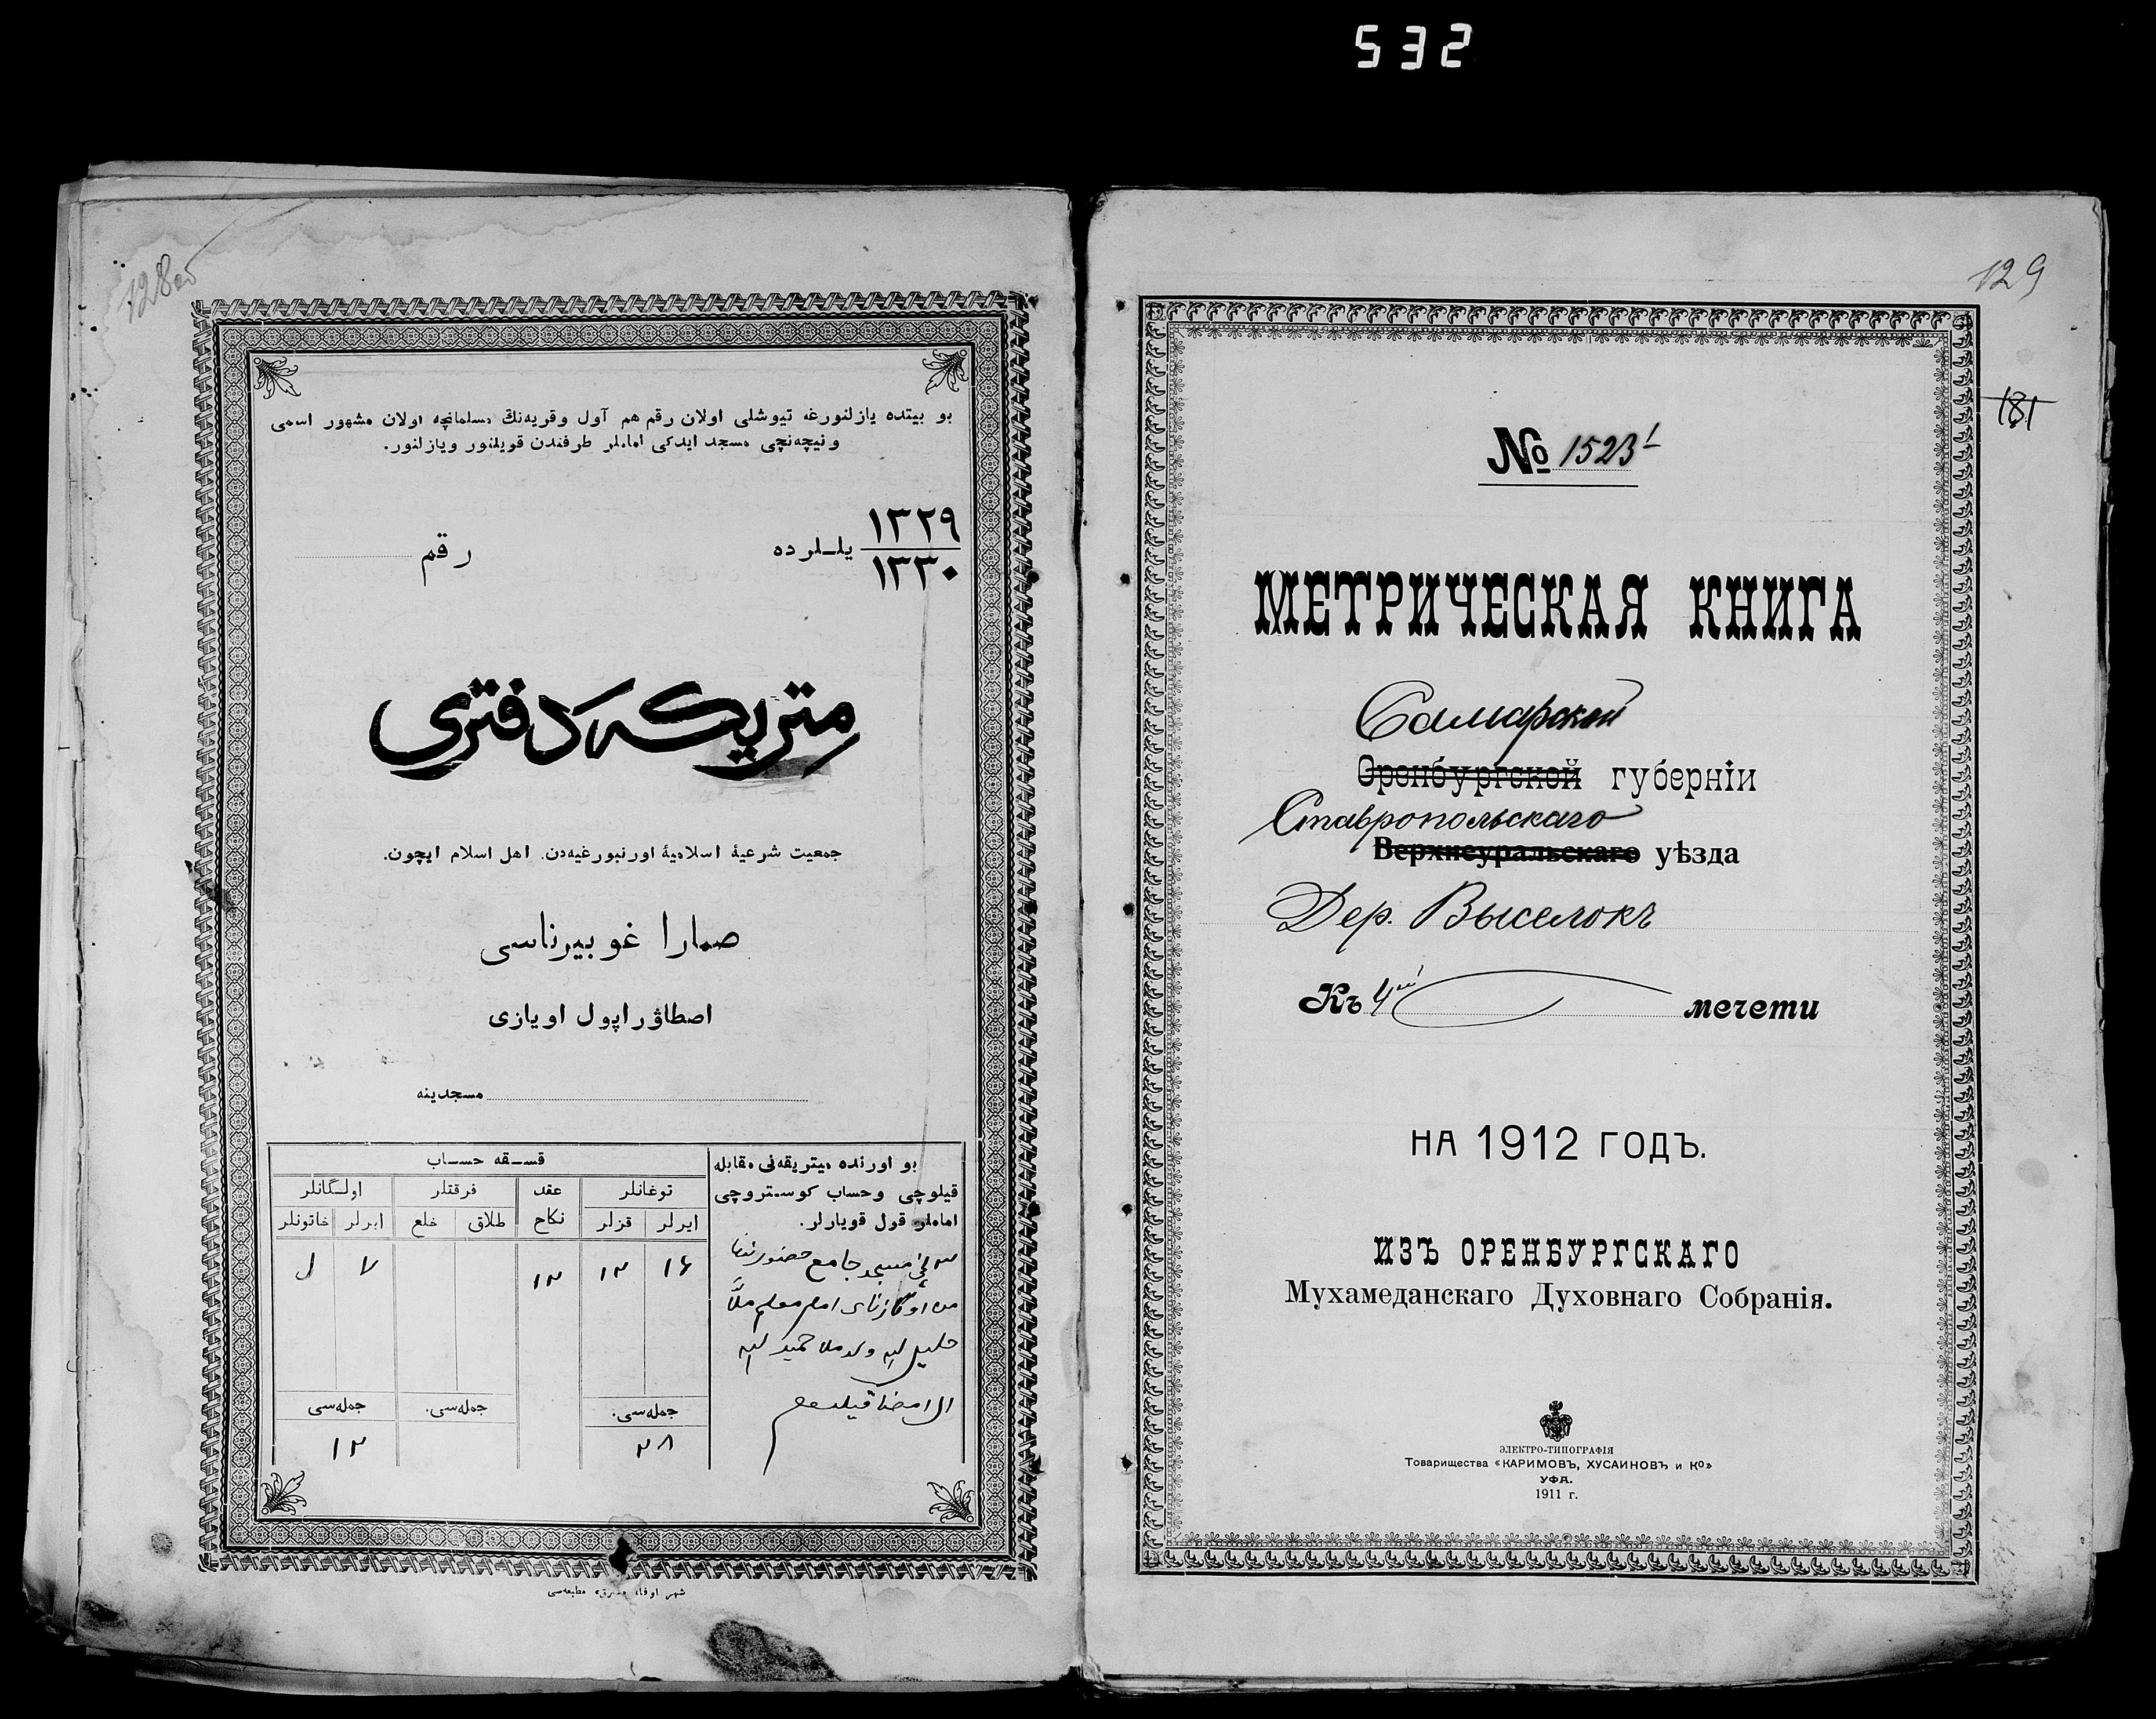 532
128об
بو بيتده يازلنورغه تيوشلى اولان رقم هم آول وقريه‌نڭ مسلمانچه اولان مشهور اسمى
ونيچه‌نچى مسجد ايدكى اماملر طرفندن قويلنور ويازلنور.
١٣٢٩
١٣٣٠
يلـلرده
رقم
متريكه دفترى
جمعيت شرعيهٔ اسلاميهٔ اورنبورغيه‌دن. اهل اسلام ايچون.
صمارا غوبيرناسى
اصطاۋراپول اويازى
مسجدينه
بو اورنده ميتريقه‌نى مقابله
قيلوچى وحساب كوستروچى
اماملر قول قويارلر.
قسـقه حسـاب
توغانلر عقد فرقتلر اولـگانلر
ايرلر قزلر نكاح طلاق خلع ايرلر خاتونلر
١٦ ١٢ ١٢ ٧
مسجد جامع
امام معلم ملا
جمله‌سى. جمله‌سى. جمله‌سى
٢٨ ١٢
129
181
№ 1523
МЕТРИЧЕСКАЯ КНИГА
Самарской
Оренбургской губерніи
Ставропольскаго
Верхнеуральскаго уѣзда
Дер. Выселокъ
Къ 4ой мечети
НА 1912 ГОДЪ.
ИЗЪ ОРЕНБУРГСКАГО
Мухамеданскаго Духовнаго Собранія.
ЭЛЕКТРО-ТИПОГРАФІЯ
Товарищества «КАРИМОВЪ, ХУСАИНОВЪ и Кº»
УФА.
1911 г.